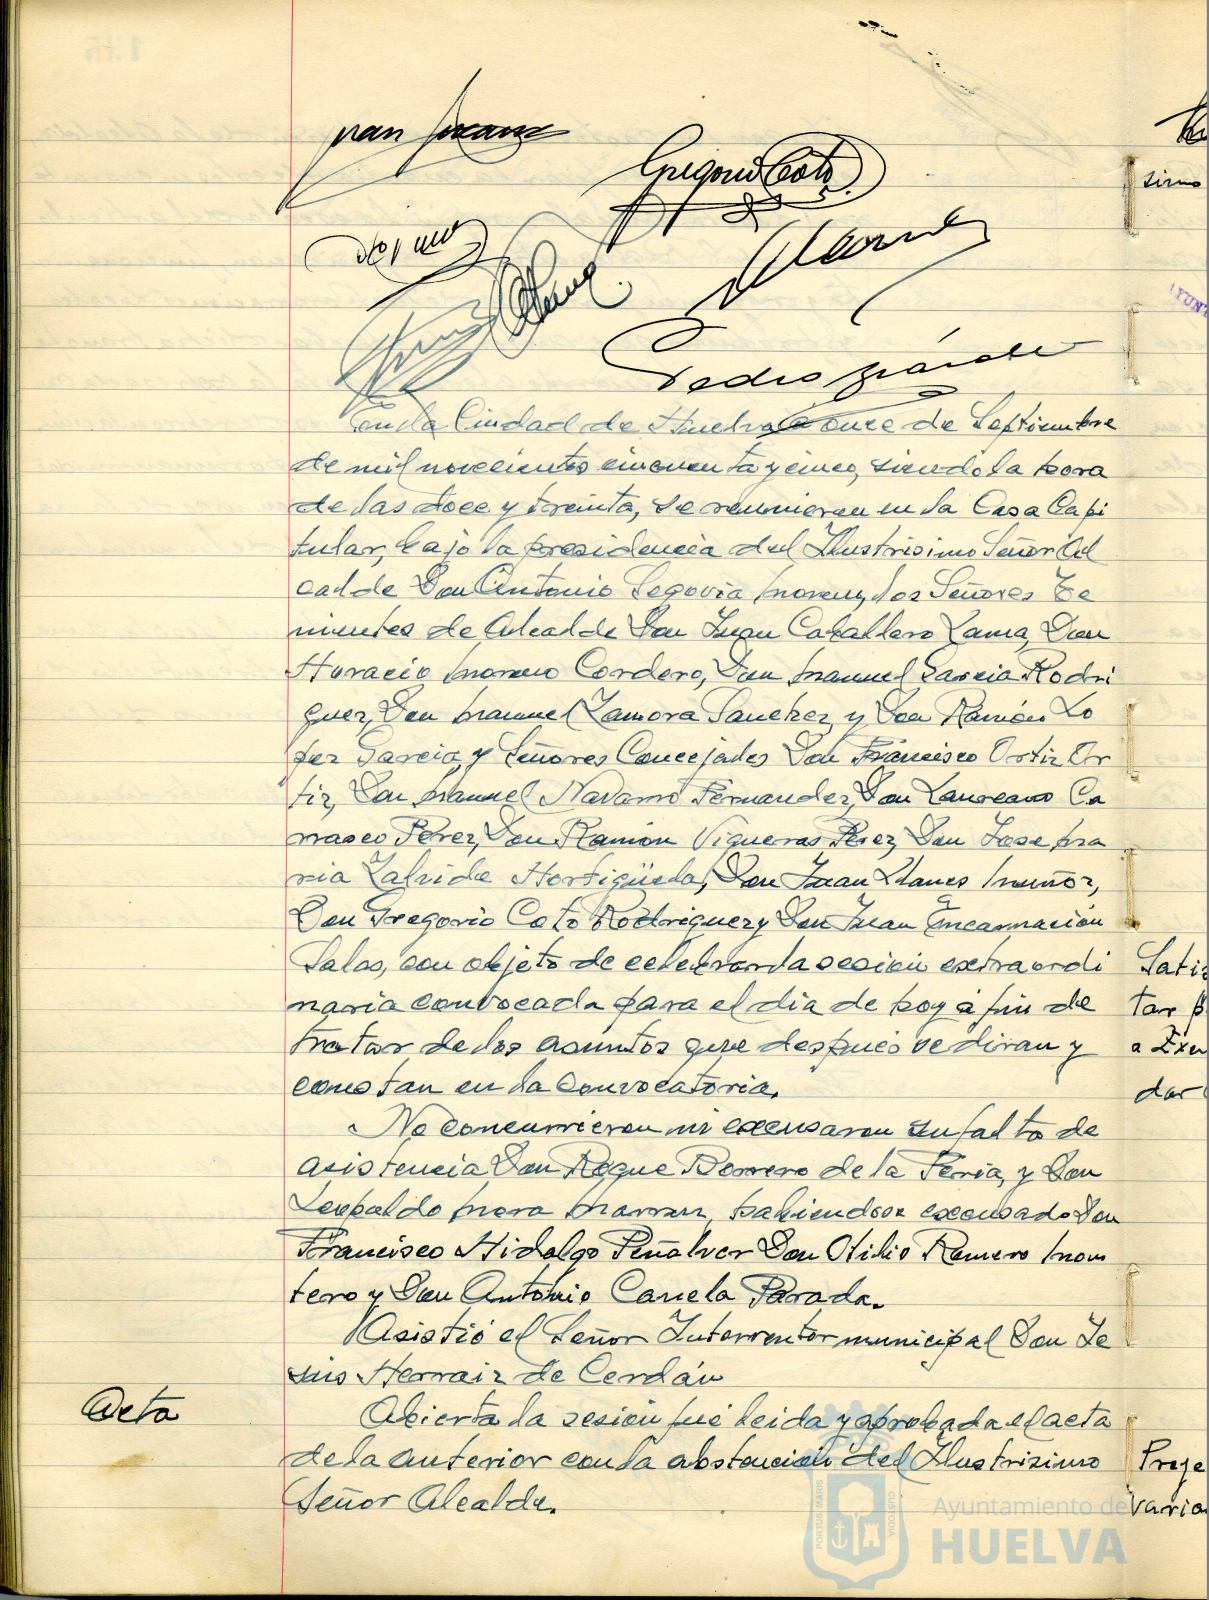 Gregorio Coto
En la Ciudad de Huelva a once de Septiembre
de mil novecientos cincuenta y cinco, siendo la hora
de las doce y treinta, se reunieron en la Casa Capi
tular, bajo la presidencia del Ilustrisimo Señor Al
calde Don Antonio Segovia Moreno, los Señores Te
nientes de Alcalde Don Juan Caballero Lama, Don
Horacio Moreno Cordero, Don Manuel Garcia Rodri
guez, Don Manuel Zamora Sanchez, y Don Ramón Lo
pez Garcia, y Señores Concejales Don Francisco Ortiz Or
tiz, Don Manuel Navarro Fernandez, Don Laureano Ca
rrasco Perez, Don Ramón Vigueras Pérez, Don Jose Ma
ria Zafrida Hortigüela, Don Juan Llanes Muñoz,
Don Gregorio Coto Rodriguez y Don Juan Encarnación
Salas, con objeto de celebrar la sesión extraordi
naria convocada para el dia de hoy a fin de
tratar de los asuntos que después se diran y
constan en la convocatoria.
No concurrieron ni excusaron su falta de
asistencia Don Roque Borrero de la Feria, y Don
Leopoldo Mora, habiendose excusado Don
Francisco Hidalgo Peñalver Don Otilio Romero Mon
tero y Don Antonio Canela Parada.
Asistió el Señor Interventor municipal Don Je
sus Herraiz de Cerdán
Acta
Abierta la sesión fué leida y aprobada el acta
de la anterior con la abstención del Ilustrisimo
Señor Alcalde.
PORTUS MARIS
CUSTODIA
Ayuntamiento de
HUELVA